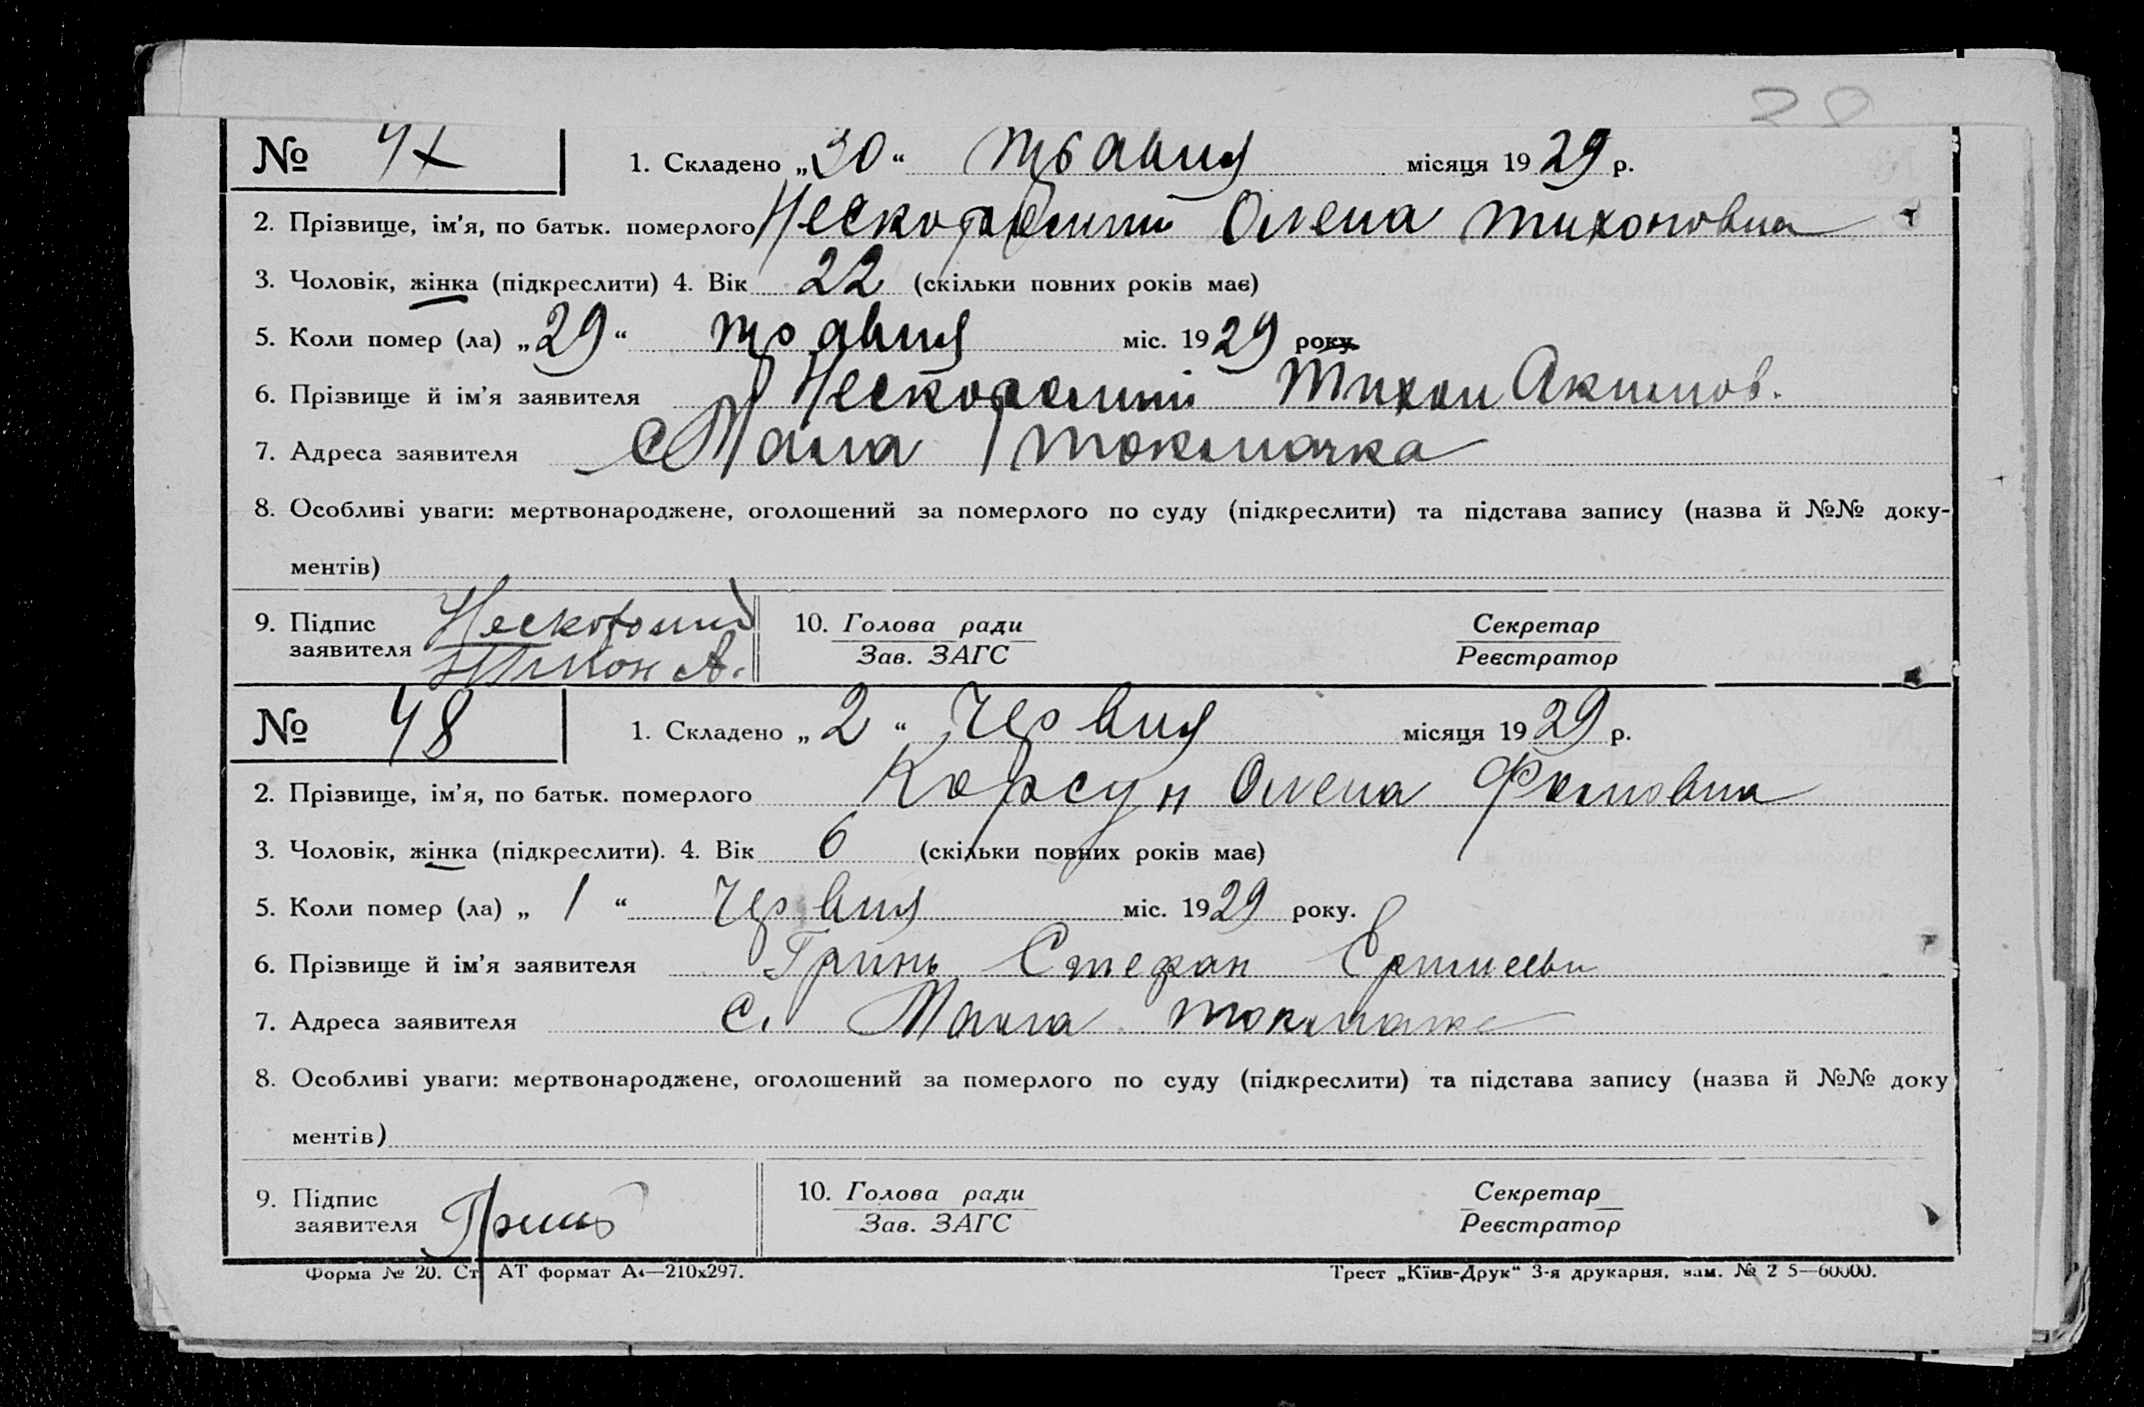 № 47 1. Складено „30“ травня місяця 1929 р.
2. Прізвище, ім’я, по батьк. померлого Нескородний Олена Тихоновна
3. Чоловік, жінка (підкреслити) 4. Вік 22 (скільки повних років має)
5. Коли помер (ла) „29“ травня міс. 1929 року.
6. Прізвище й ім’я заявителя Тихон Акимов.
7. Адреса заявителя с Мала Токмачка
8. Особливі уваги: мертвонароджене, оголошений за померлого по суду (підкреслити) та підстава запису (назва й №№ доку-
ментів)
9. Підпис заявителя Тихон А. 10. Голова ради Зав. ЗАГС Секретар Реєстратор
№ 48 1. Складено „2“ червня місяця 1929 р.
2. Прізвище, ім’я, по батьк. померлого Корсун Олена Фомовна
3. Чоловік, жінка (підкреслити). 4. Вік 6 (скільки повних років має)
5. Коли помер (ла) „1“ червня міс. 1929 року.
6. Прізвище й ім’я заявителя Гринь Стефан
7. Адреса заявителя с. Мала Токмачк
8. Особливі уваги: мертвонароджене, оголошений за померлого по суду (підкреслити) та підстава запису (назва й №№ доку
ментів)
9. Підпис заявителя Гринь 10. Голова ради Зав. ЗАГС Секретар Реєстратор
Форма № 20. Ст АТ формат А4—210х297. Трест „Київ-Друк“ 3-я друкарня, зам. № 2 5—60000.